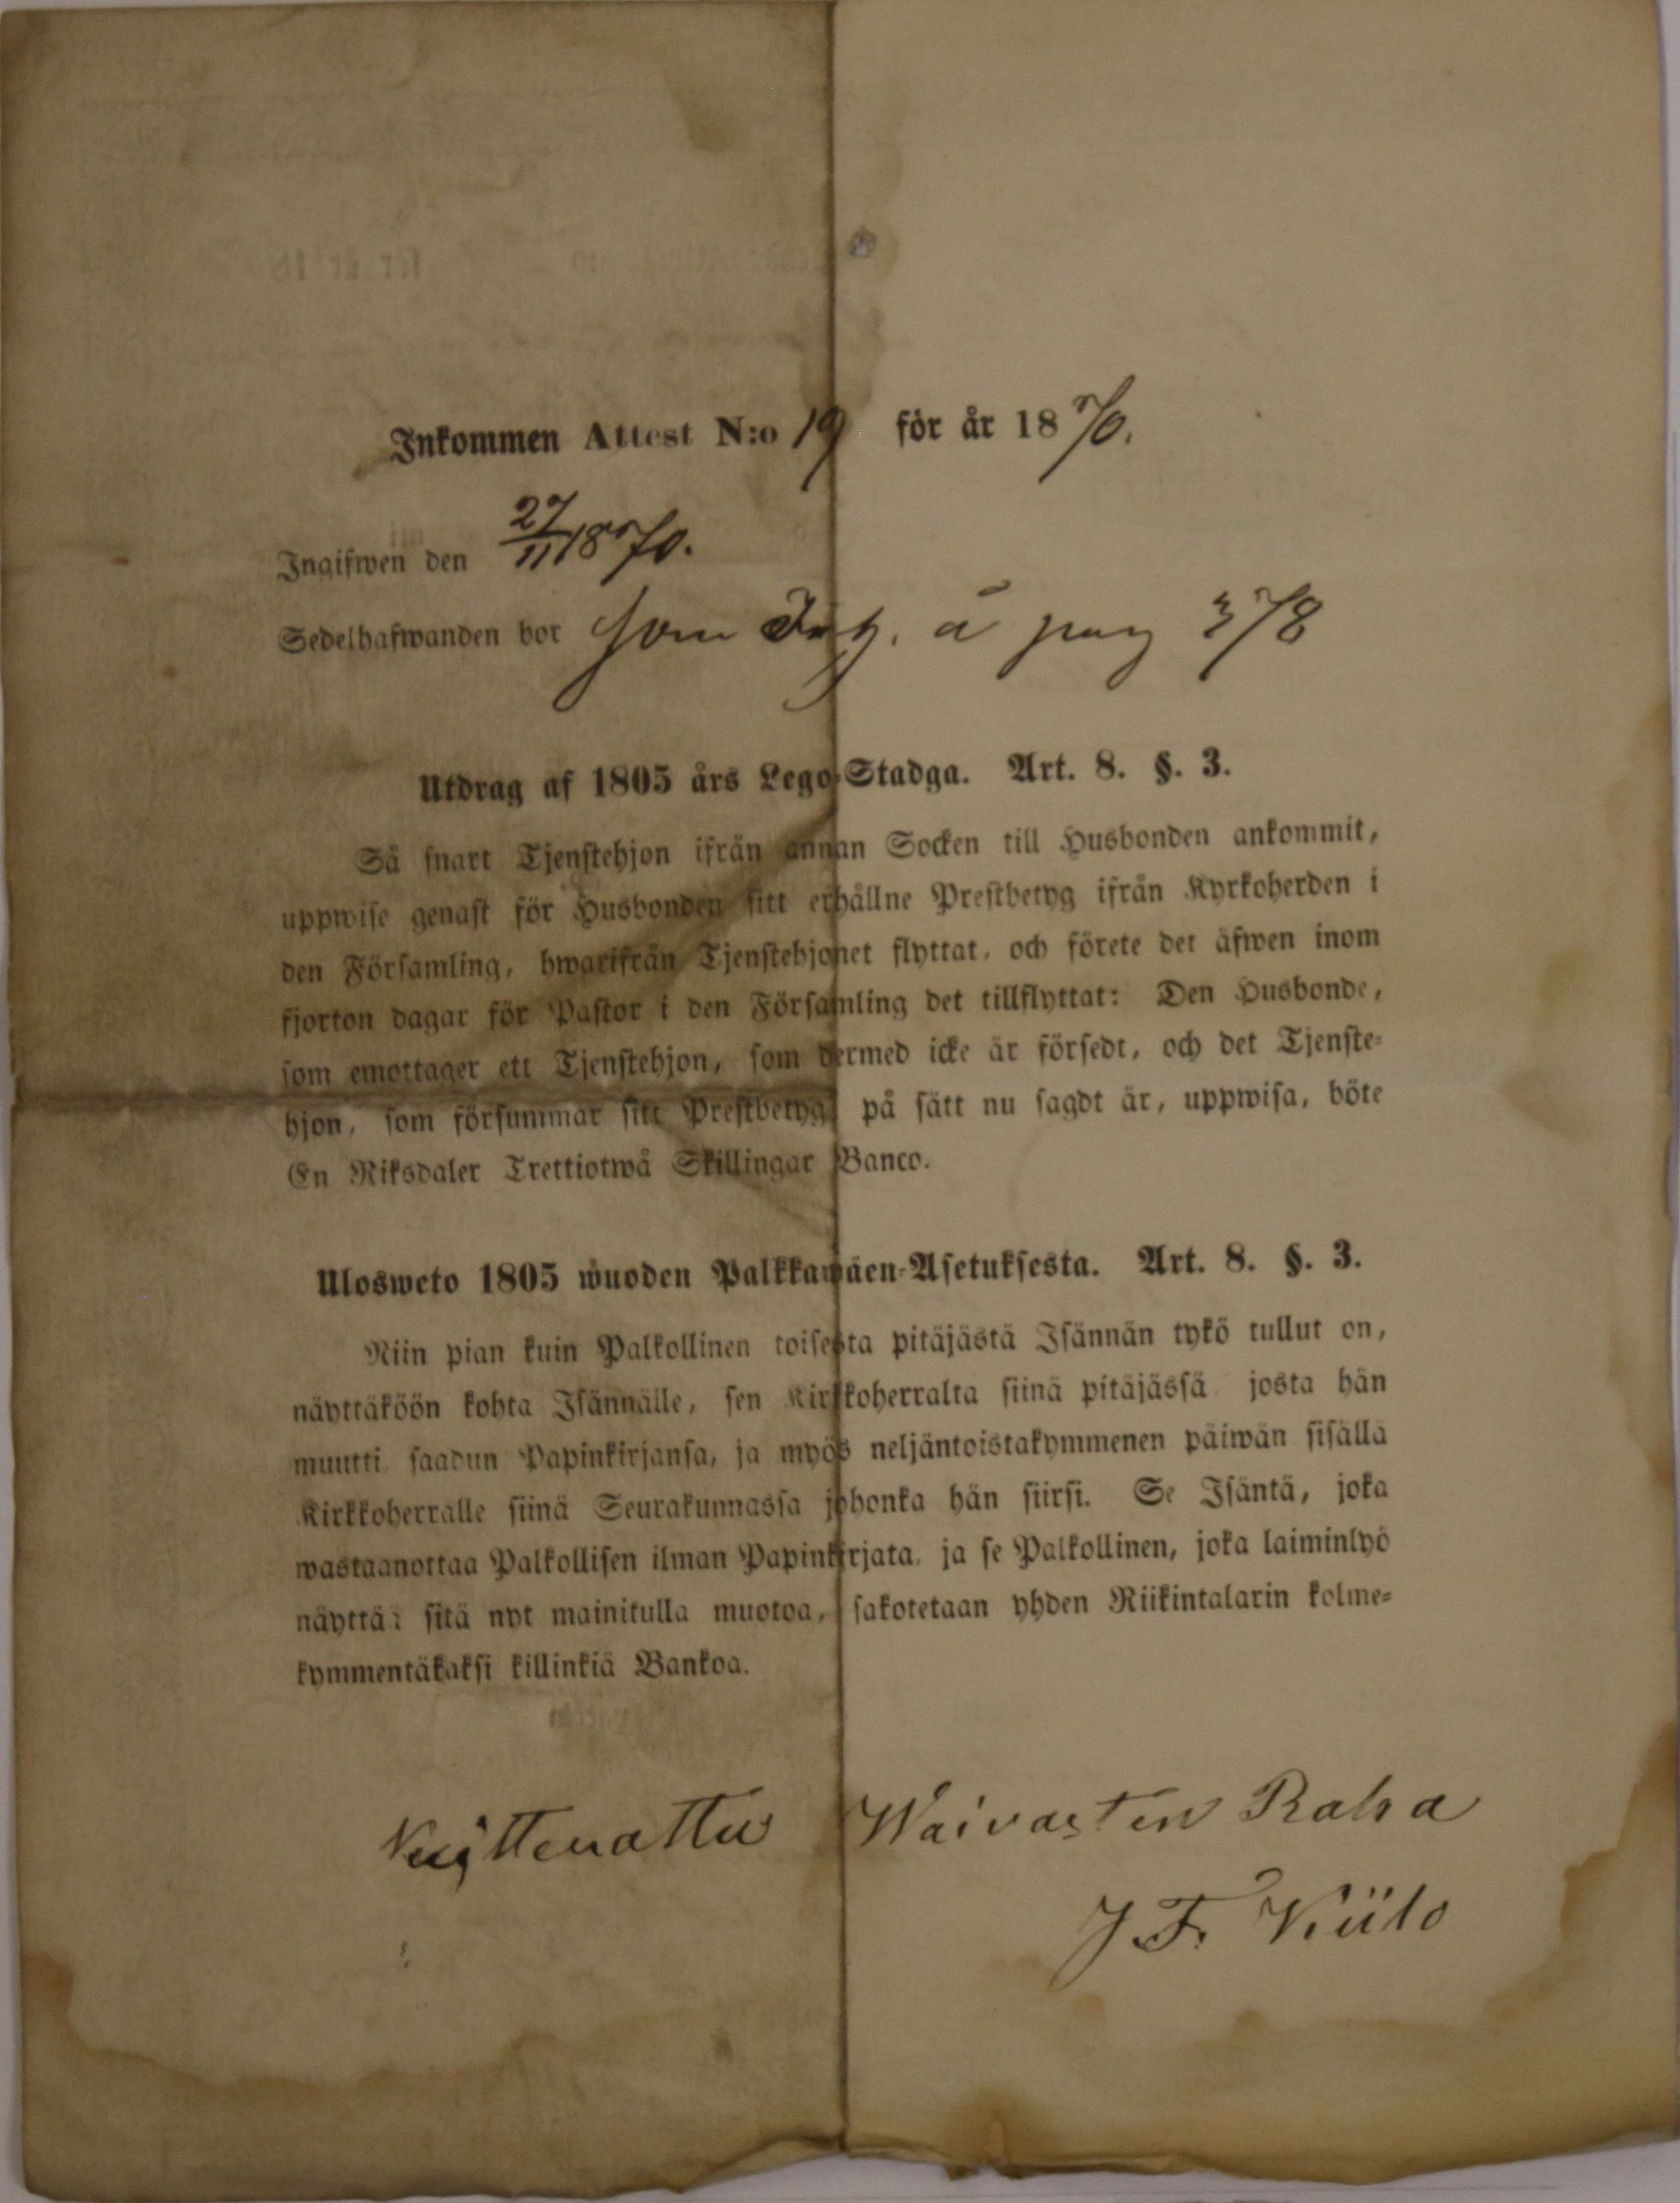 Inkommen Attest N:o 19 för år 1870.
Ingifwen den 27/11 1870.
Sedelhafwanden bor som Inh. å pag 378
Utdrag af 1805 års Lego-Stadga. Art. 8. §. 3.
Så snart Tjenstehjon ifrån annan Socken till Husbonden ankommit,
uppwise genast för Husbonden sitt erhållne Prestbetyg ifrån Kyrkoherden i
den Församling, hwarifrån Tjenstehjonet flyttat, och förete det äfwen inom
fjorton dagar för Pastor i den Församling det tillflyttat: Den Husbonde,
som emottager ett Tjenstehjon, som dermed icke är försedt, och det Tjenste-
hjon, som försummar sitt Prestbetyg på sätt nu sagdt är, uppwisa, böte
En Riksdaler Trettiotwå Skillingar Banco.
Ulosweto 1805 wuoden Palkkawäen-Asetuksesta. Art. 8. §. 3.
Niin pian kuin Palkollinen toisesta pitäjästä Isännän tykö tullut on,
näyttäköön kohta Isännälle, sen Kirkkoherralta siinä pitäjässä josta hän
muutti saadun Papinkirjansa, ja myös neljäntoistakymmenen päiwän sisällä
Kirkkoherralle siinä Seurakunnassa johonka hän siirsi. Se Isäntä, joka
wastaanottaa Palkollisen ilman Papinkirjata, ja se Palkollinen, joka laiminlyö
näyttää sitä nyt mainitulla muotoa, sakotetaan yhden Riikintalarin kolme-
kymmentäkaksi killinkiä Bankoa.
Waivasten Raha
J. F. Kiilo